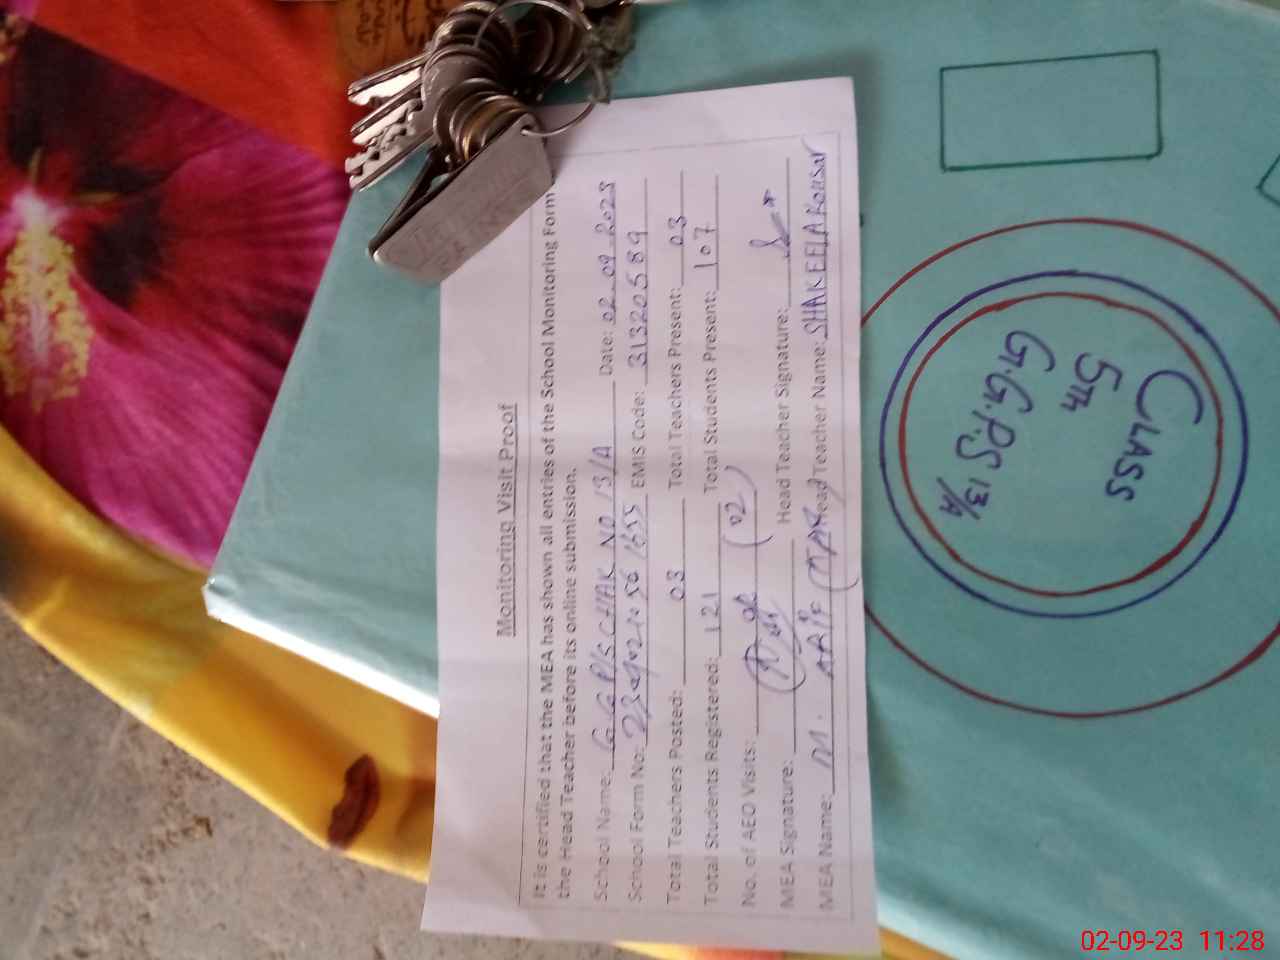 Monitoring Visit Proof
It is certified that the MEA has shown all entries of the School Monitoring Form
the Head Teacher before its online submission.
School Name: GGP/S CHAK NO 13/A Date: 02-09-2023
School Form No: EMIS Code: 31320589
Total Teachers Posted: 03 Total Teachers Present: 03
Total Students Registered: 121 Total Students Present: 107
No. of AEO Visits: 02 (02)
MEA Signature: Head Teacher Signature:
MEA Name: M. ARIF Head Teacher Name: SHAKEELA Kousar
CLASS
5TH
G.G.P.S 13/A
02-09-23 11:28